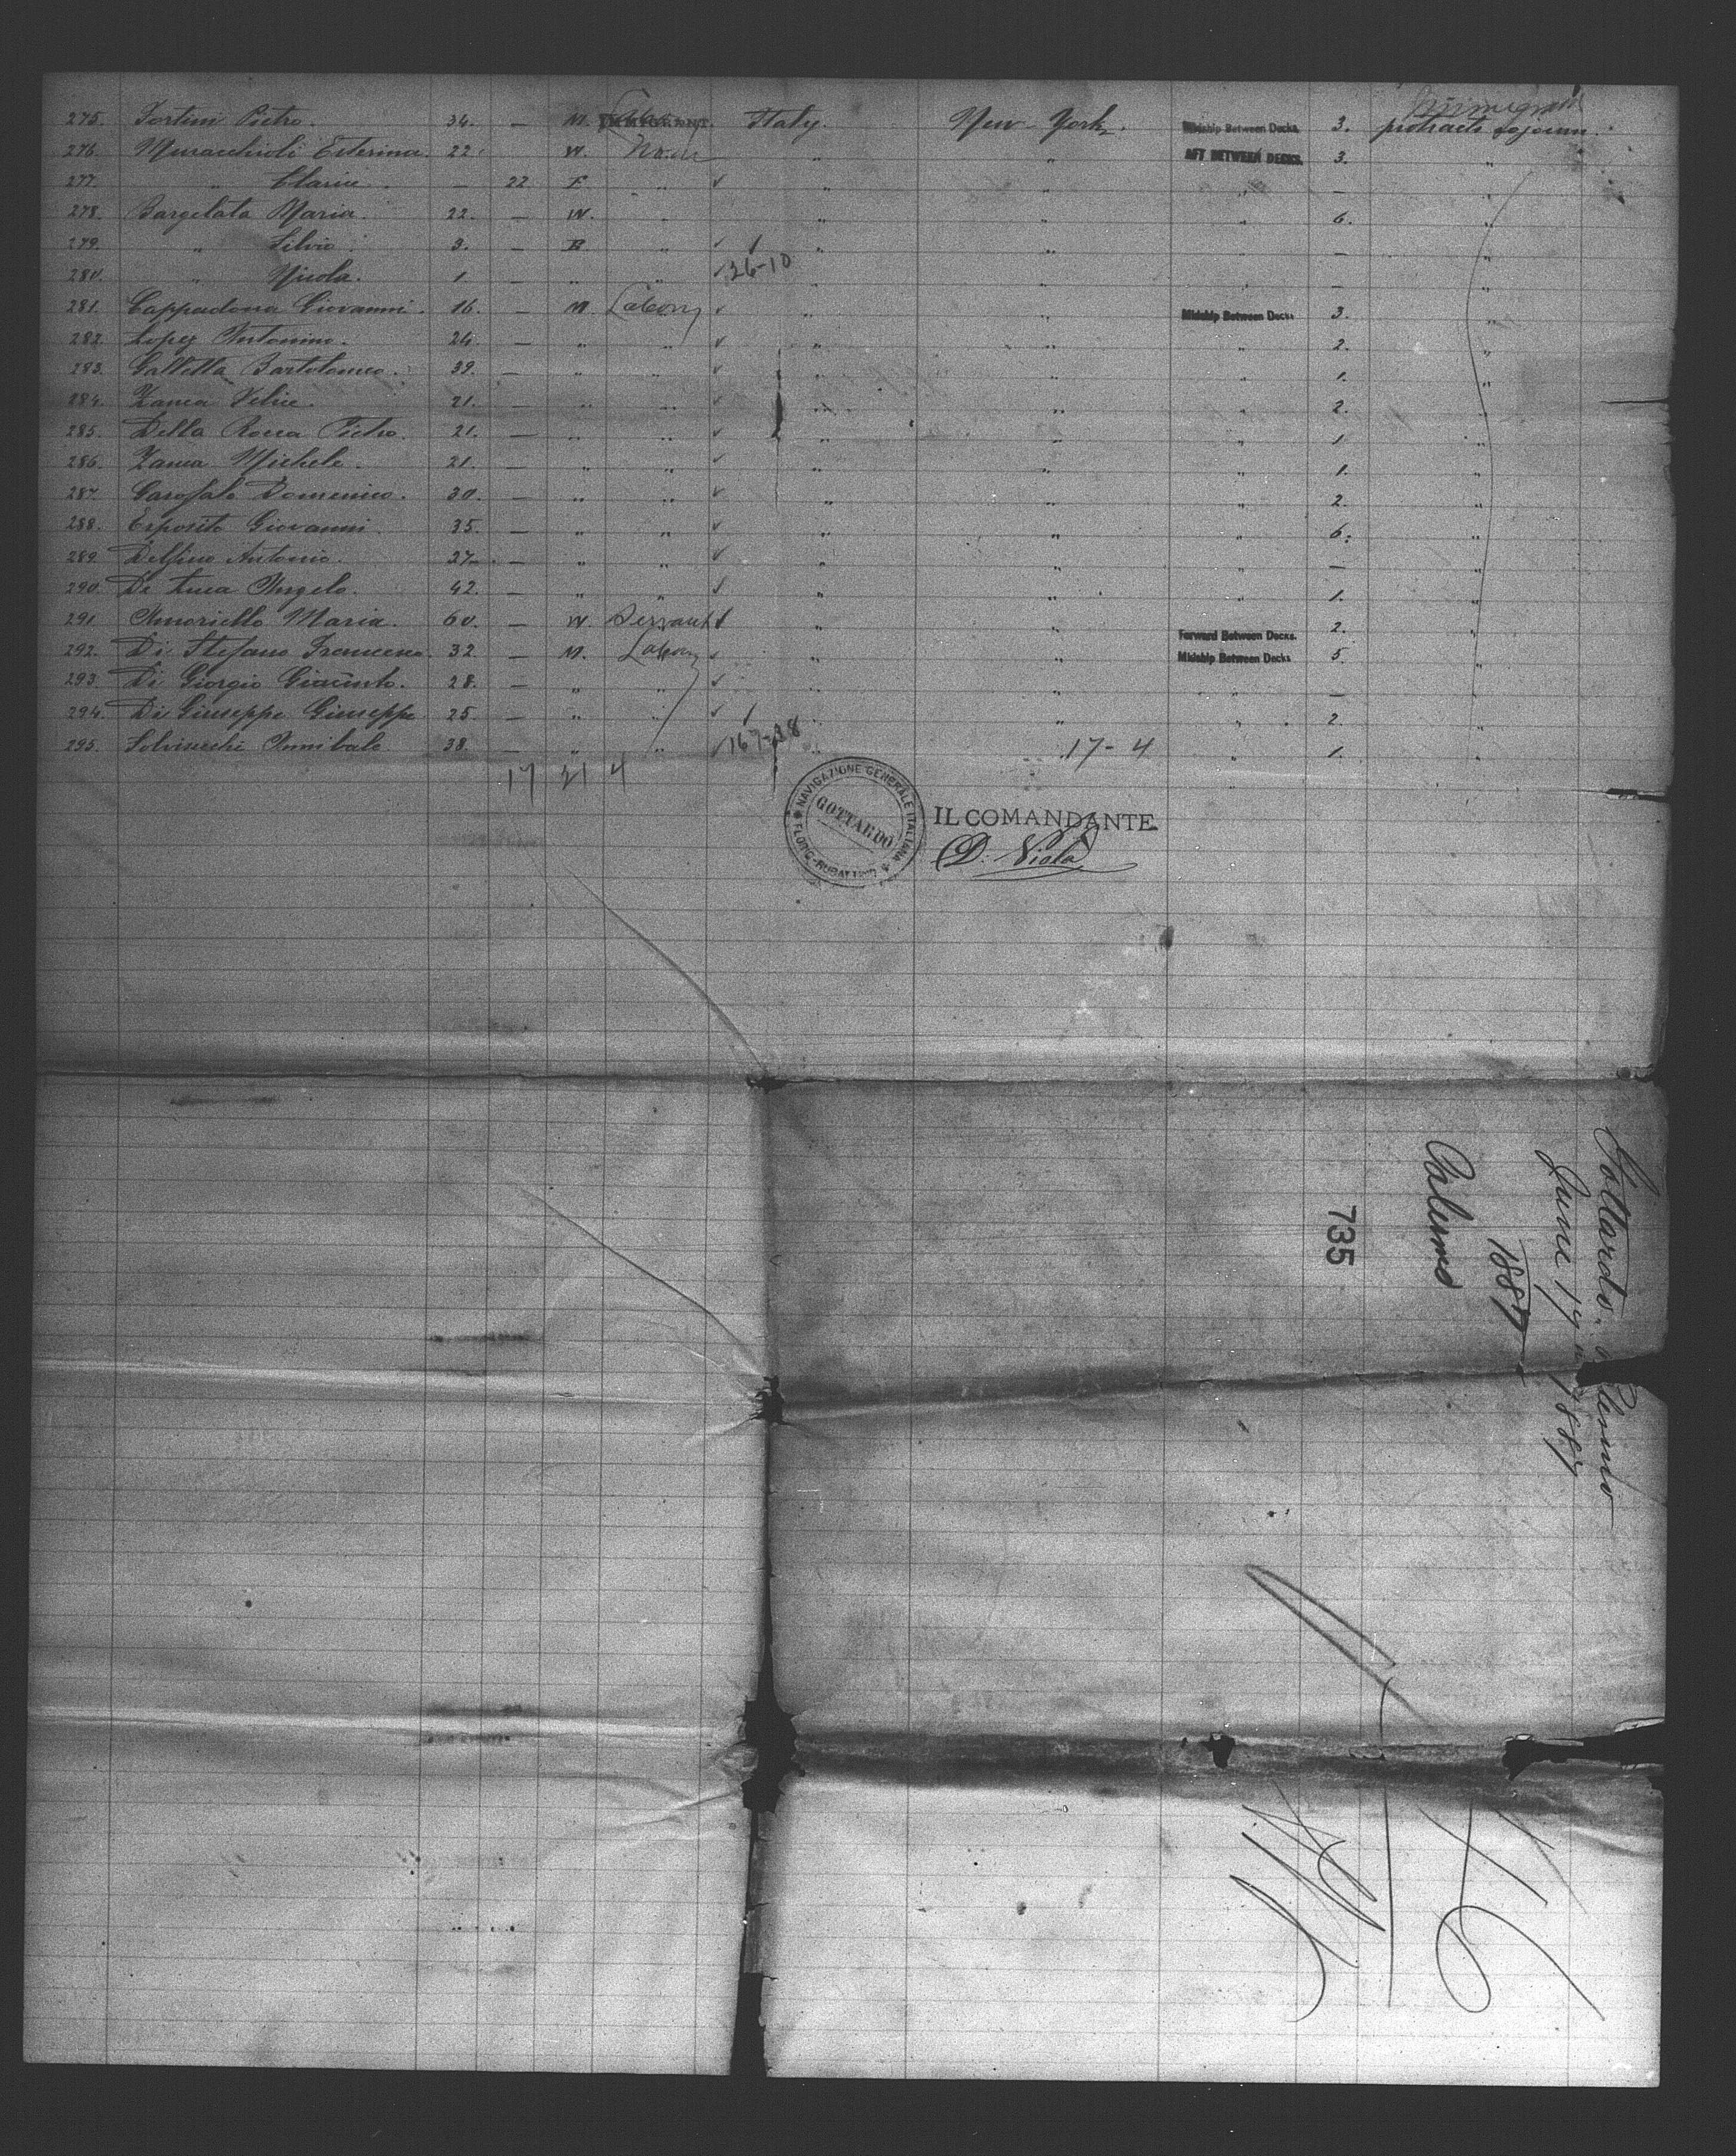 Immigrant
275. Fortini Pietro. 34. — M. Italy New-York. Midship Between Decks. 3. protracted sojourn.
276. Esterina. 22. W. None " " AFT BETWEEN DECKS. 3. "
277. " Clarice. — 22 F " ✓ " " " — "
278. Bargelata Maria. 22. — W. " " " 6. "
279. " Silvio. 3. — B. " ✓ " " — "
280. " Nicola. 1. — " " ✓ 26-10 — "
281. Cappadona Giovanni. 16. — M. Labory ✓ " " Midship Between Decks 3. "
282. Lopez Antonino. 24. — " " ✓ " " " 2. "
283. Galletta Bartolomeo. 39. — " " ✓ " " " 1. "
284. Zanca Felice. 21. — " " ✓ " " " 2. "
285. Della Rocca Pietro. 21. — " " ✓ " " " 1 "
286. Zanca Michele. 21. — " " ✓ " " " 1. "
287. Garofalo Domenico. 30. — " " ✓ " " " 2. "
288. Esposito Giovanni 35. — " " ✓ " " " 6. "
289. Delfino Antonio. 27. — " " ✓ " " " — "
290. De Luca Angelo. 42. — " " ✓ " " " 1. "
291 Amoriello Maria. 60. — W. Servant ✓ " " Forward Between Decks. 2. "
292. Di Stefano Francesco. 32 — M. Labory ✓ " " Midship Between Decks 5. "
293. Di Giorgio Giacinto. 28. — " " ✓ " " " — "
294. Di Giuseppe Giuseppe 25. — " " ✓ " " " 2. "
295. Annibale 38. — " " ✓ 167-28 " 17-4 " 1. "
17 21 4
NAVIGAZIONE GENERALE ITALIANA
GOTTARDO
FLORIO-RUBATTINO
IL COMANDANTE
D. Viola
Gottardo. Palermo
June 17 1887
1887
Palermo
735